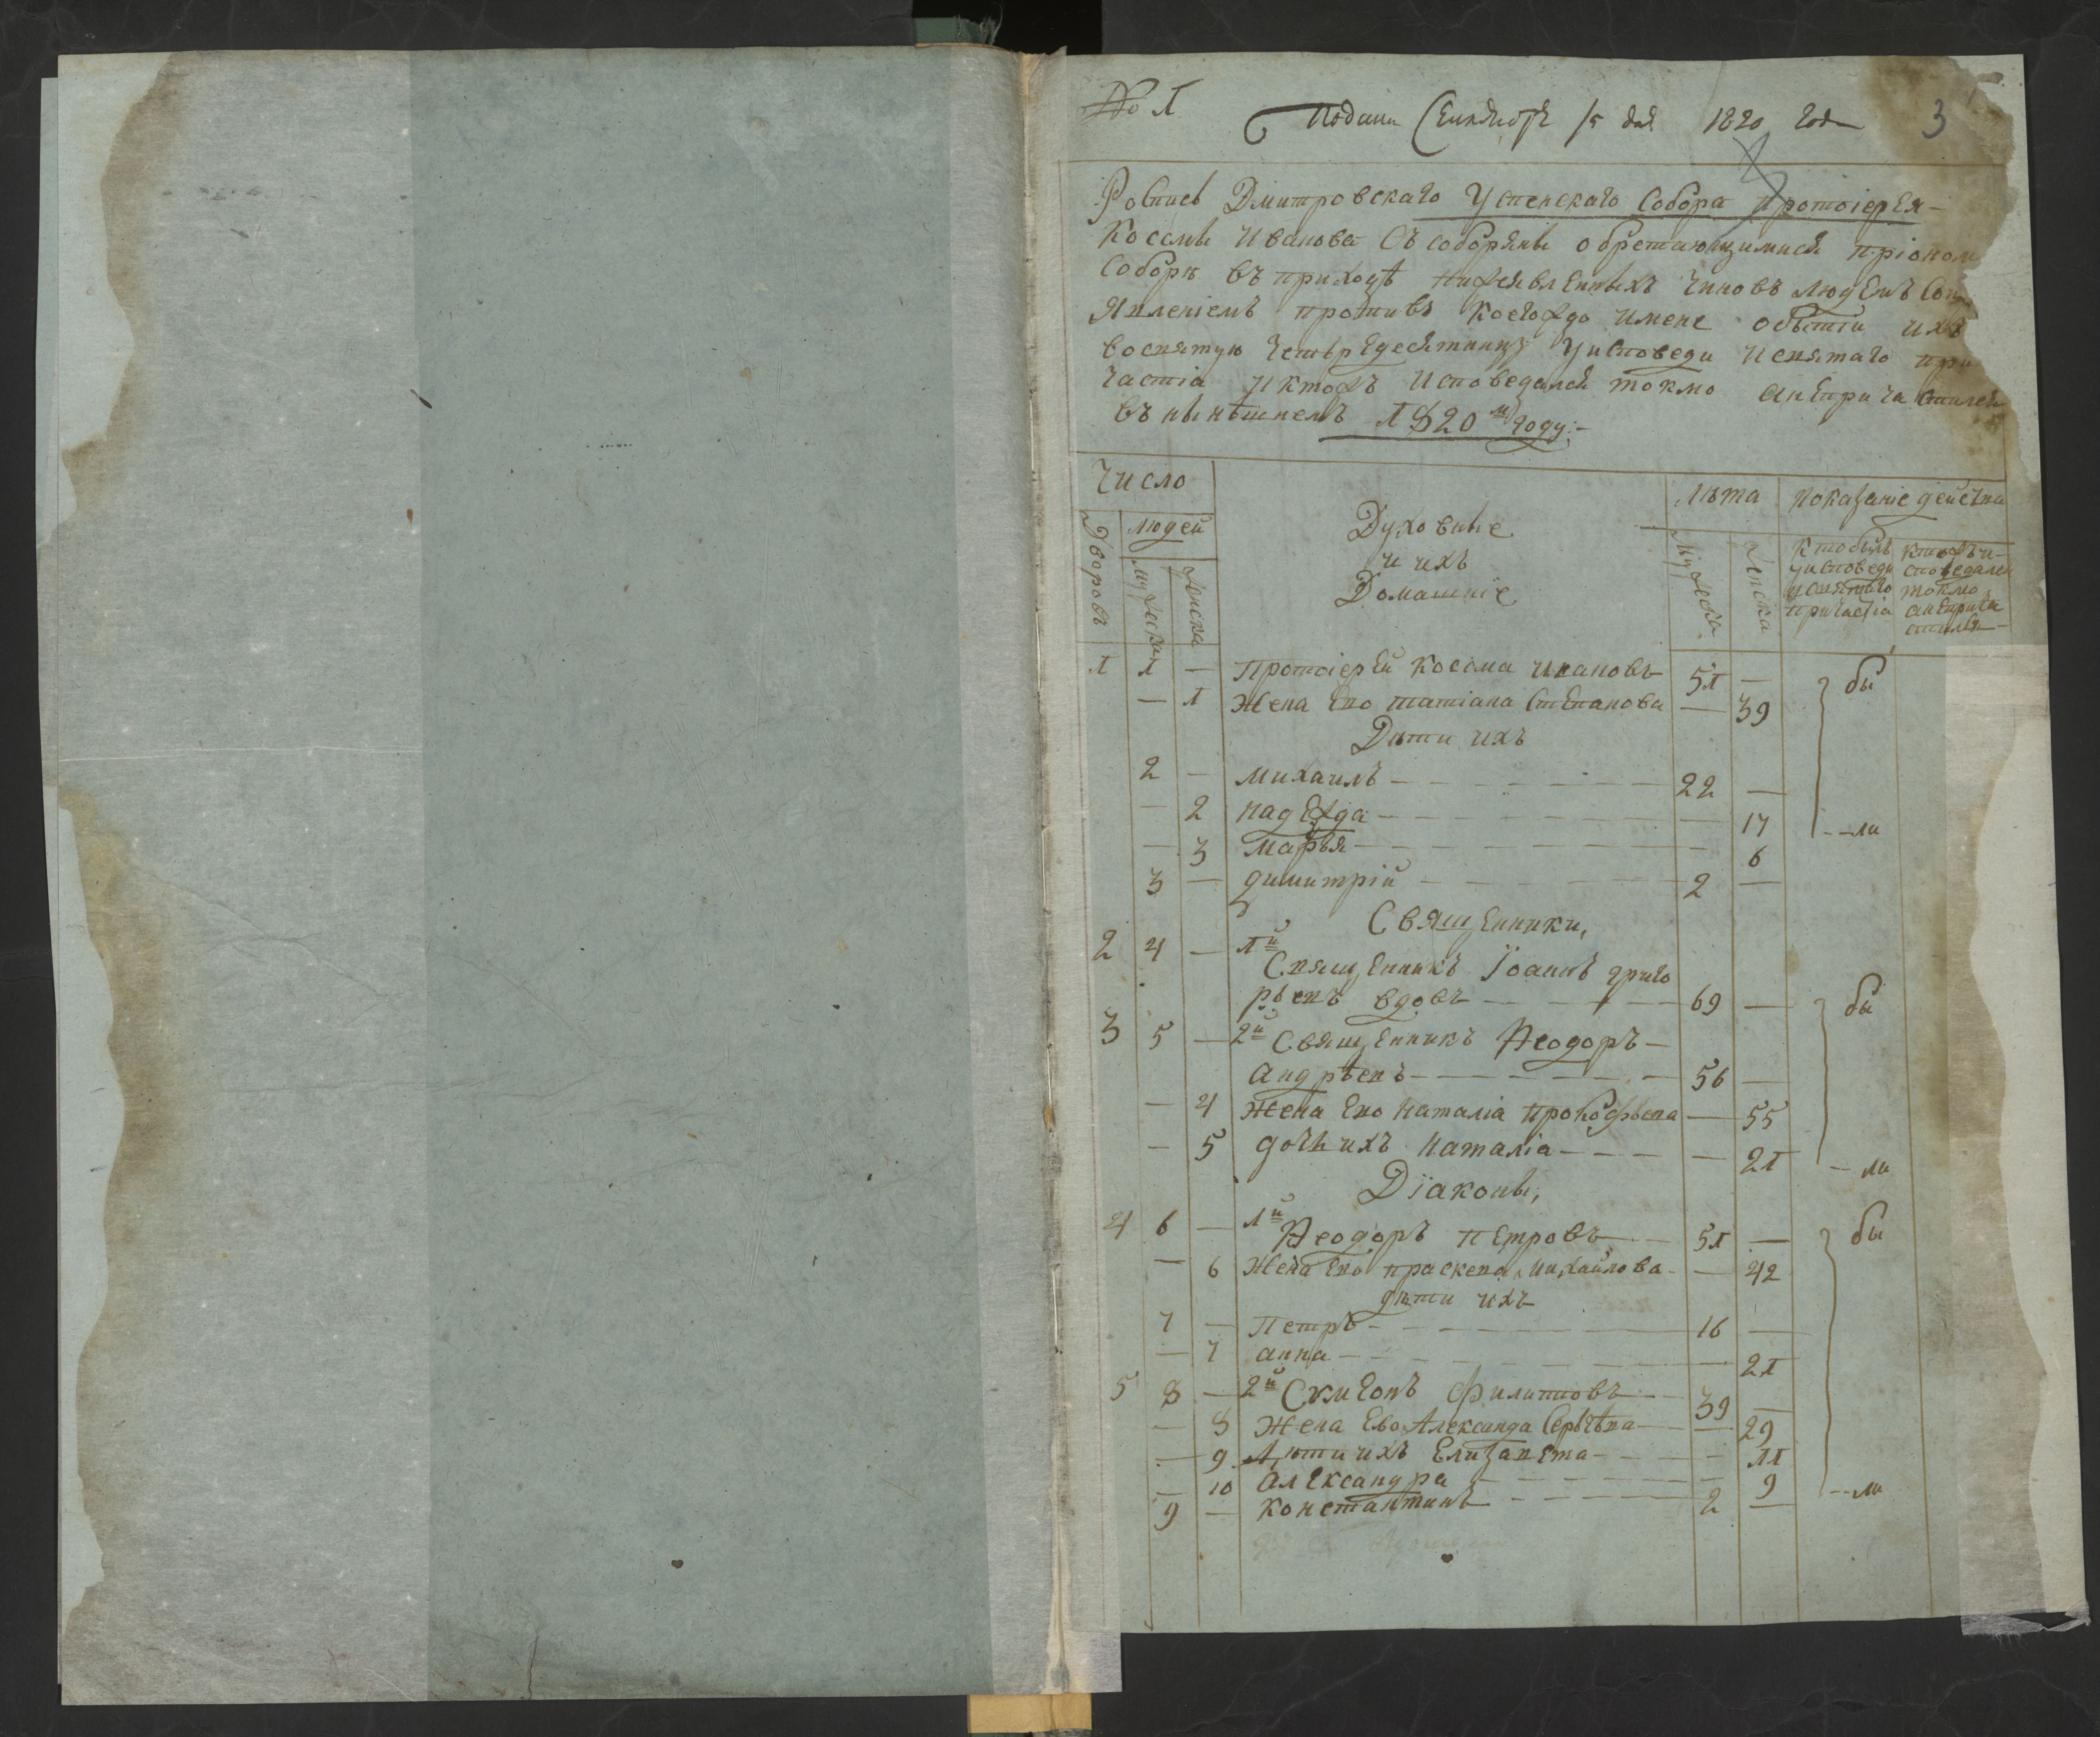 № 1
Подани Сентября 15 дня 1820 года
3
Роспись Дмитровскаго Успенскаго Собора протоіерея
Космы Иванова съ соборяны обретающимися приономъ
Соборѣ въ приходѣ нижеявленныхъ чиновъ людемъ Со
явленіемъ противъ коегождо имене о бытіи ихъ
во святую четыредесятницу у исповеди и святаго при
частія и ктожъ исповедался токмо а не причастился
въ нынѣшнемъ 1820м году:-
Число
Дворовъ
людей
мужеска
женска
Духовные
и ихъ
Домашніе
лѣта
мужеска
женска
показаніе действа
кто былъ у исповеди и святаго причастіа
ктожъ исповедался токмо а не причастился
1 1 — Протоіерей Косма Ивановъ 51 — бы
— 1 Жена Ево татіана Степанова — 39
Дѣти ихъ
2 — михаилъ 22 —
— 2 надежда — 17 ли
— 3 марья — 6
3 — димитрій 2 —
Священники,
2 4 — 1й Священникъ Іоаннъ григо
рьевъ вдовъ 69 — бы
3 5 — 2й Священникъ Ѳеодоръ
андрѣевъ 56 —
— 4 Жена Ево Наталіа прокофьева — 55
— 5 дочь ихъ Наталіа — 21 ли
Діаконы,
4 6 — 1й Ѳеодоръ петровъ 51 — бы
— 6 Жена Ево праскева Михайлова — 42
дѣти ихъ
7 — Петръ 16 —
— 7 анна — 21
5 8 — 2й Симеонъ Филиповъ 39 —
— 8 Жена Ево Александра Сергѣева — 29
— 9 Дѣти ихъ Елизавета — 11
— 10 Александра — 9 ли
9 — Константинъ 2 —